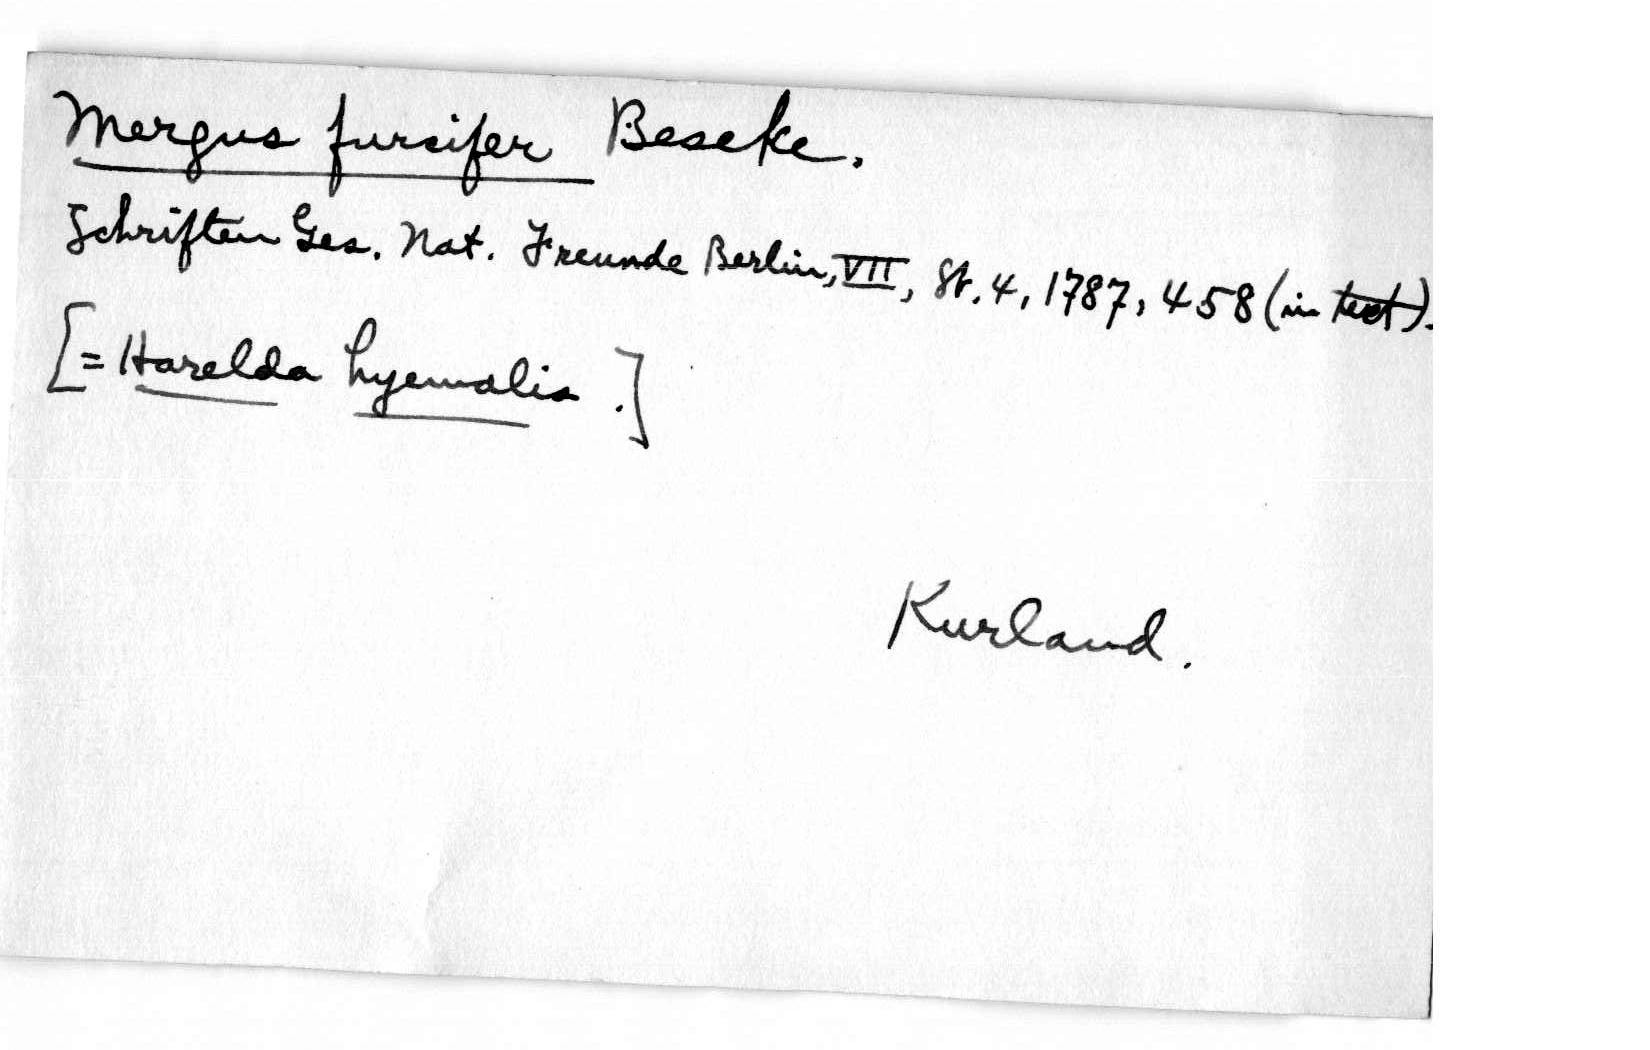 Mergus furcifer Beseke.
Schriften Ges. Nat. Freunde Berlin, VII, St. 4, 1787, 458 (in text).
[= Harelda hyemalis.]
Kurland.